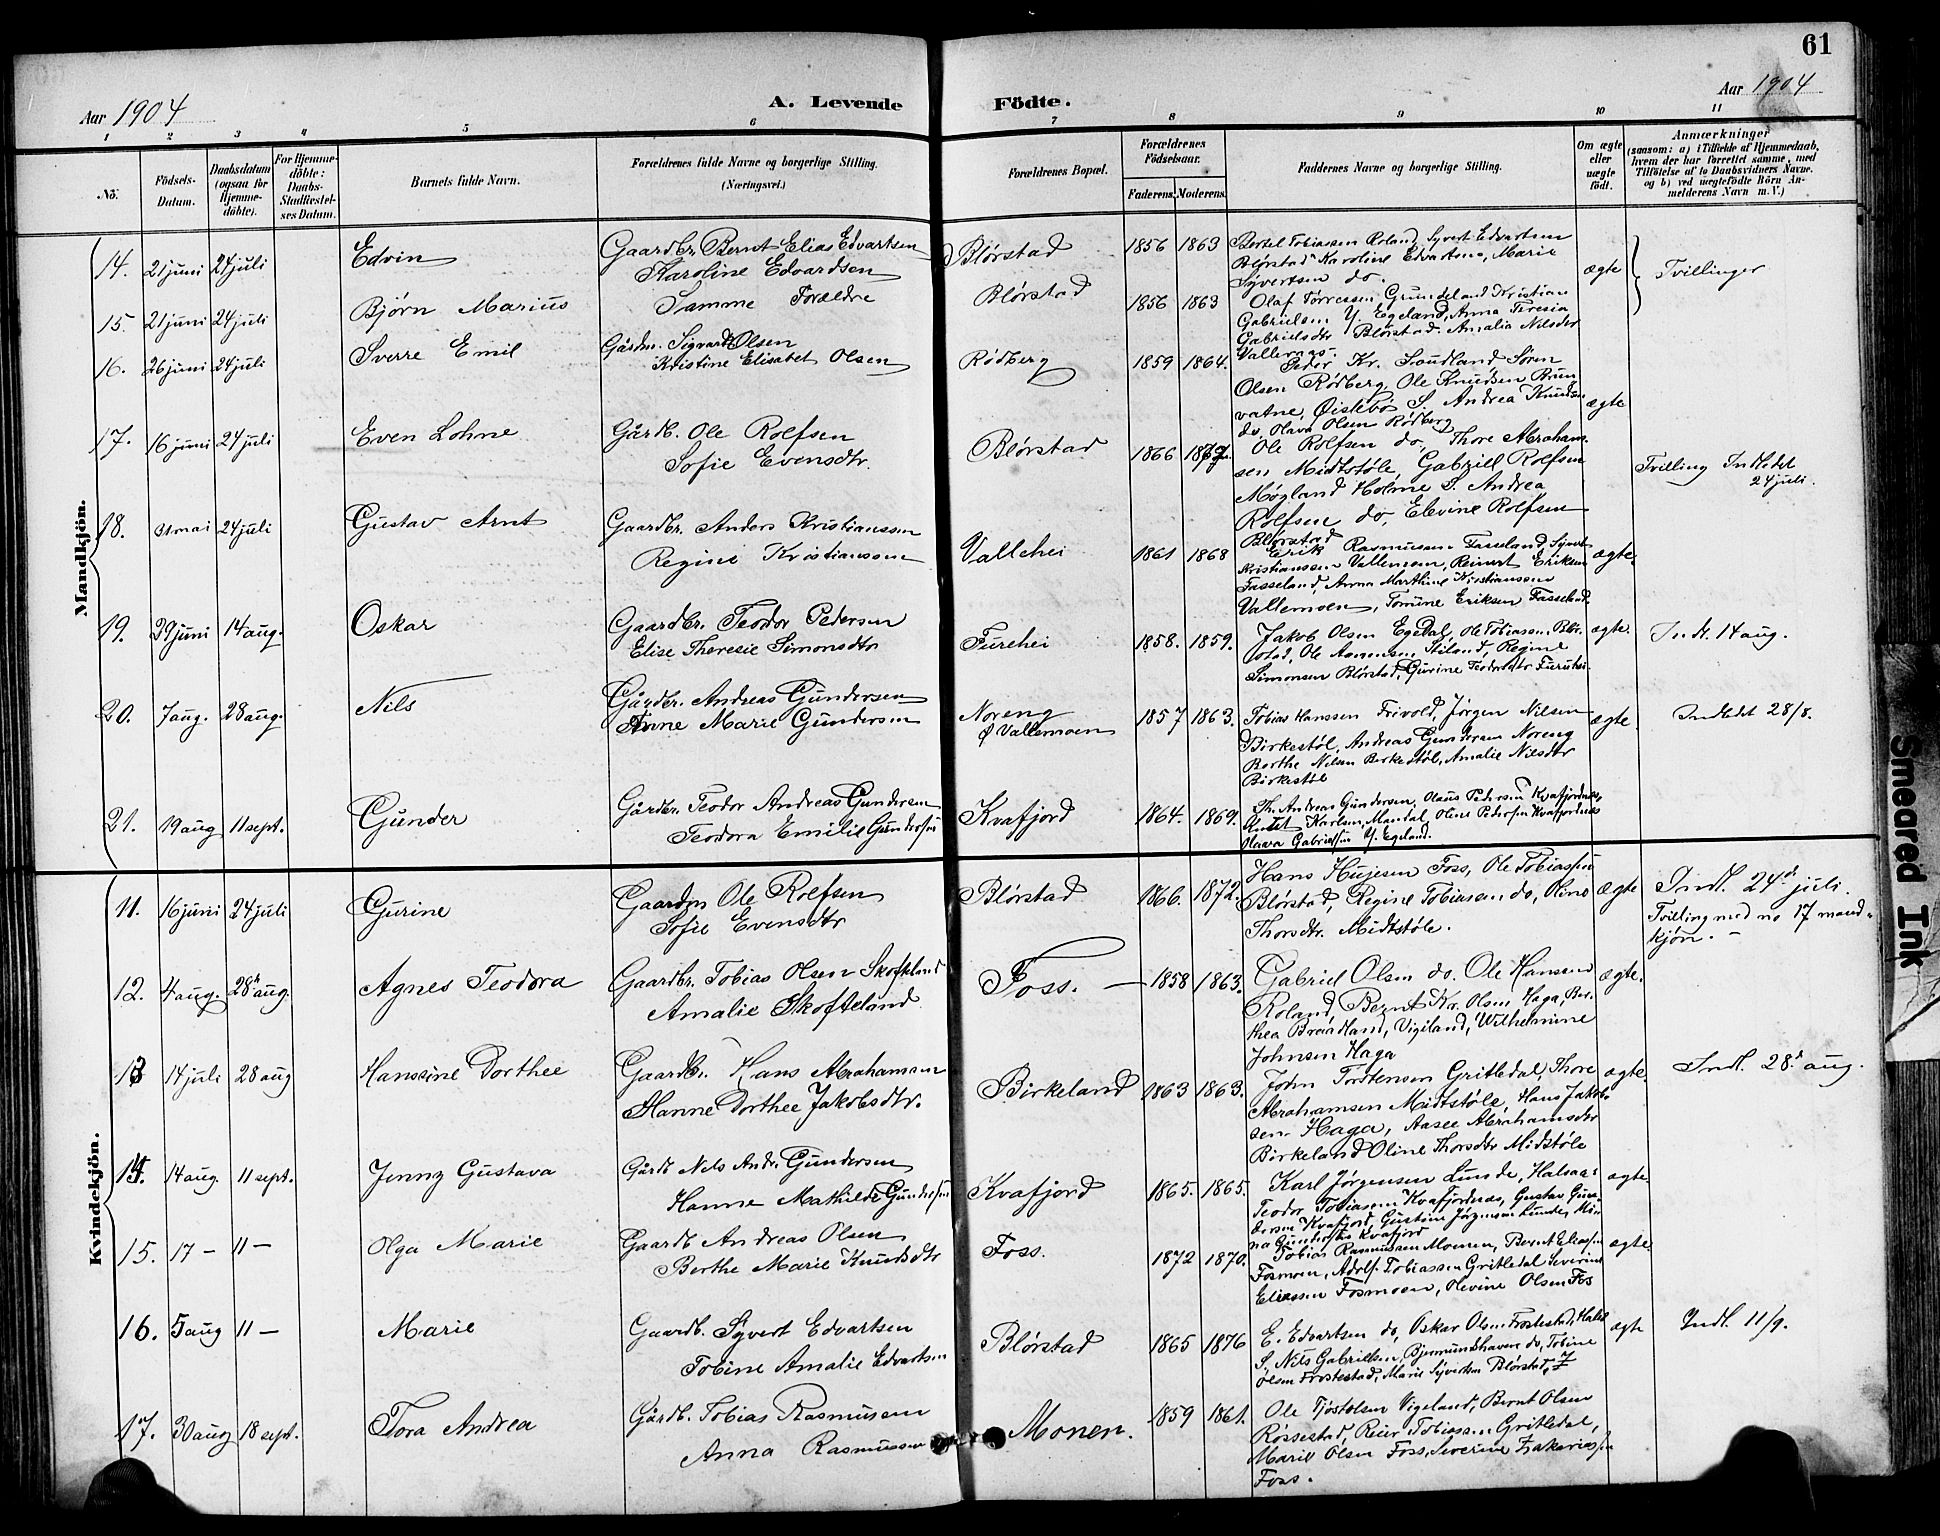 61
Aar 1904
A. Levende Födte.
Aar 1904
1 2 3 4 5 6 7 8 9 10 11
No.
Födsels-
Datum.
Daabsdatum
(ogsaa for
Hjemme-
döbte).
For Hjemme-
döbte:
Daabs-
Stadfæstel-
ses Datum.
Barnets fulde Navn.
Forældrenes fulde Navne og borgerlige Stilling.
(Næringsvei.)
Forældrenes Bopæl.
Forældrenes
Födselsaar.
Faderens. Moderens.
Faddernes Navne og borgerlige Stilling.
Om ægte
eller
uægte
födt.
Anmærkninger
(saasom: a) i Tilfælde af Hjemmedaab,
hvem der har forrettet samme, med
Tilföielse af to Daabsvidners Navne.
og b) ved uægtefödte Börn An-
melderens Navn m. V.)
Mandkjön.
14. 21 juni 24 juli
Edvin
Gaardbr. Bernt Elias Edvartsen
Karoline Edvardsen
Blørstad
1856 1863
Bertel Tobiassen Roland, Syvert Edvartsen
Blørstad Karoline Edvartsen, Marie
Syvertsen do.
ægte
Tvillinger
15. 21 juni 24 juli
Bjørn Marius
Samme Forældre
Blørstad
1856 1863
Olaf Tørressen Grundeland Kristian
Gabrielsen Y. Egeland, Anna Teresia
Gabrielsdtr Blørstad Amalia Nilsdtr
Vallernes.
16. 26 juni 24 juli
Sverre Emil
Gårdm. Sigvardt Olsen
Kristine Elisabet Olsen
Rødberg
1859 1864.
Peder Kr. Søren
Olsen Rødberg, Ole Knudsen Brun
vatne, Øislebø S. Andrea Knudsen
do, Olava Olsen Rødberg
ægte
17. 16 juni 24 juli
Even Lohne
Gårdb. Ole Rolfsen
Sofie Evensdtr.
Blørstad
1866
Ole Rolfsen do, Thore Abraham
sen Midtstøle, Gabriell Rolfsen
Møgland Holme S. Andrea
Rolfsen do, Elevine Rolfsen
Blørstad
Tvilling Indledet
24 juli.
18. 31 mai 24 juli
Gustav Arnt
Gaardbr. Anders Kristianssen
Regine Kristianssen
Vallehei
1861 1868
Erik Rasmussen Fasseland, Syvert
Kristianssen Vallemoen, Reinert Eriksen
Fasseland, Anna Marthine Kristianssen
Vallemoen, Tomine Eriksen Fasseland.
ægte.
19. 29 juni 14 aug.
Oskar
Gaardbr. Teodor Pedersen
Elise Theresie Simonsdtr
Furehei
1858. 1859.
Jakob Olsen Egedal, Ole Tobiassen Blør
stad, Ole Aanensen Stiland, Regine
Simonsen Blørstad, Gurine Teodorsdtr Furuhei
ægte.
Indt. 14 aug.
20. 7 aug. 28 aug.
Nils
Gårdbr. Andreas Gundersen
Anne Marie Gundersen
Noreng
Ø Vallemoen
1857 1863.
Tobias Hanssen Frivold, Jørgen Nilsen
Birkestøl, Andreas Gundersen Noreng
Berthe Nilsen Birkestøl, Amalie Nilsdtr
Birkestøl
ægte.
Indledet 28/8.
21. 19 aug 11 sept.
Gunder
Gårdbr. Teodor Andreas Gundersen
Teodora Emilie Gundersen
Kvafjord
1864. 1869.
Th. Andreas Gundersen, Olaus Pedersen Kvafjordnes,
Karlsen Mandal, Oline Pedersen Kvafjordnes
Gabrielsen Y. Egeland.
Kvindekjön.
11. 16 juni 24 juli
Gurine
Gaardm Ole Rolfsen
Sofie Evensdtr
Blørstad
1866. 1872.
Hans Foss, Ole Tobiassen
Blørstad, Regine Tobiassen do, Oline
Thorsdtr. Midtstøle.
ægte
Indl. 24d juli.
Tvilling med no 17 mand-
kjøn. -
12. 4 aug. 28 aug.
Agnes Teodora
Gaardbr. Tobias Olsen Skofteland
Amalie Skofteland
Foss. —
1858 1863.
Gabriel Olsen do. Ole Hansen
Roland, Bernt Kr. Olsen Haga, Ber-
thea Breidland, Vigiland, Wilhelmine
Johnsen Haga
ægte.
13 14 juli 28 aug
Hanssine Dorthee
Gaardbr. Hans Abrahamsen
Hanne Dorthee Jakobsdtr.
Birkeland
1863 1863.
John Tordtensen Gritledal, Thore
Abrahamsen Midtstøle, Hans Jakob-
sen Haga, Aasee Abrahamsdtr
Birkeland Oline Thorsdtr Midstøle
ægte.
Indl. 28d aug.
14. 14 aug. 11 sept.
Jenny Gustava
Gårdb Nils Andr. Gundersen
Hanne Mathilde Gundersen
Kvafjord
1865. 1865.
Karl Jørgensen Lunde, Halsaa:
Teodor Tobiassen Kvafjordnes, Gustav Gun-
dersen Kvafjord, Gustine Jørgensen Lunde, Mi-
na Gundersen Kvafjord
ægte.
15. 17 — 11 —
Olga Marie
Gaardb Andreas Olsen
Berthe Marie Knudsdtr
Foss.
1872 1870.
Tobias Rasmussen Monen, Bernt Eliassen
Fosmoen, Adolf Tobiassen Gritledal Severine
Eliassen Fosmoen, Olevine Olsen Fos
ægte.
16. 5 aug 11 —
Marie
Gaardb. Syvert Edvartsen
Tobine Amalie Edvartsen
Blørstad
1865 1876
E. Edvartsen do, Oskar Olsen Frostestad, Halse
S. Nils Gabrielsen, Bjermundshaven do, Tobine
Olsen Frostestad, Marie Syvertsen Blørstad,
ægte
Indl. 11/9.
17. 30 aug 18 sept.
Tora Andrea
Gårdb. Tobias Rasmusen
Anna Rasmussen
Monen.
1859 1861.
Ole Tjostolsen Vigeland, Bernt Olsen
Røssestad, Reier Tobiassen Gritledal,
Marie Olsen Foss, Severine Zakariassen
Foss.
Smeared Ink